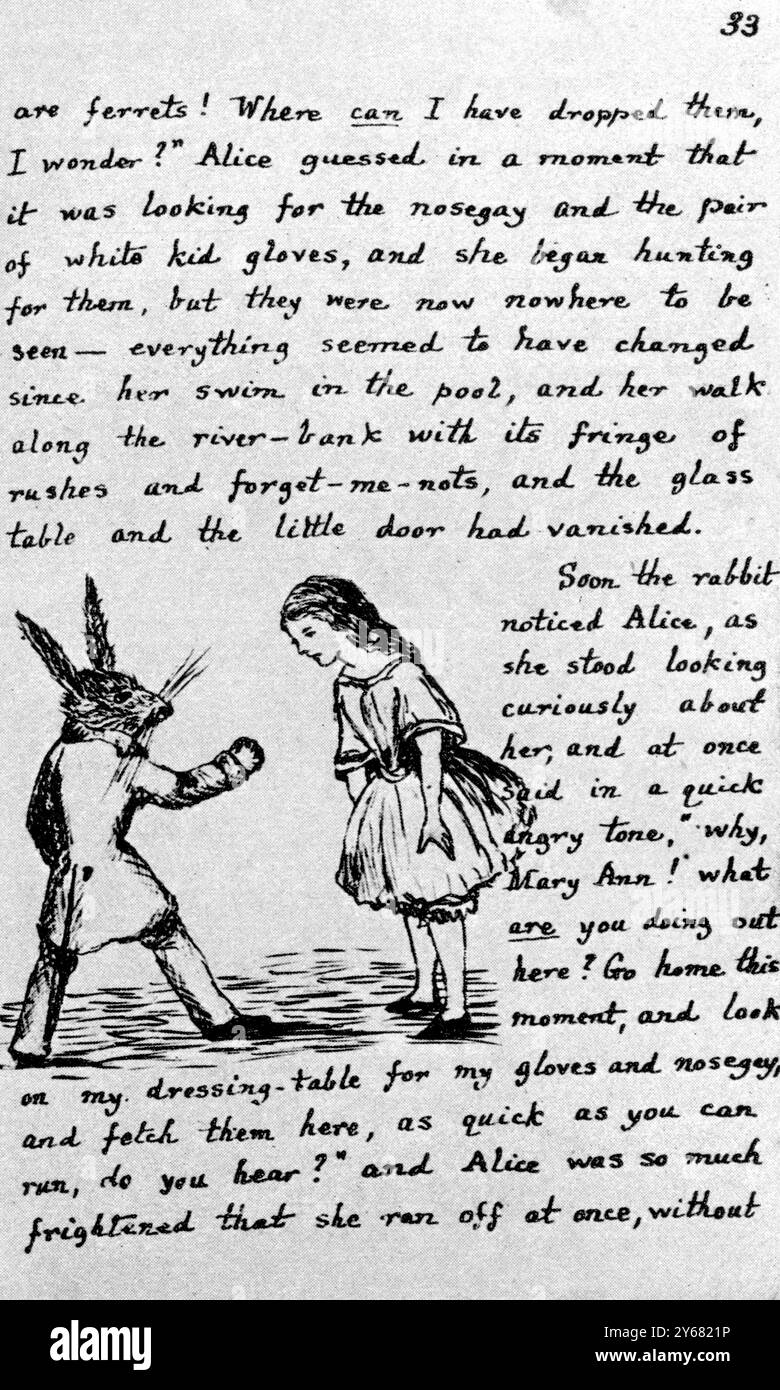 33
are ferrets! Where can I have dropped them,
I wonder?" Alice guessed in a moment that
it was looking for the nosegay and the pair
of white kid gloves, and she began hunting
for them, but they were now nowhere to be
seen — everything seemed to have changed
since her swim in the pool, and her walk
along the river-bank with its fringe of
rushes and forget-me-nots, and the glass
table and the little door had vanished.
Soon the rabbit
noticed Alice, as
she stood looking
curiously about
her, and at once
said in a quick
angry tone, "why,
Mary Ann! what
are you doing out
here? Go home this
moment, and look
on my dressing-table for my gloves and nosegay,
and fetch them here, as quick as you can
run, do you hear?" and Alice was so much
frightened that she ran off at once, without
alamy
Image ID: 2Y6821P
www.alamy.com